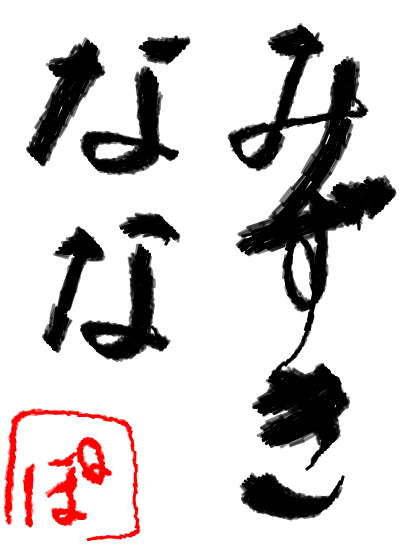 みすき
なな
ぽ